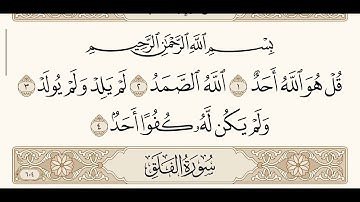 بِسْمِ ٱللَّهِ ٱلرَّحْمَٰنِ ٱلرَّحِيمِ
قُلْ هُوَ ٱللَّهُ أَحَدٌ ١ ٱللَّهُ ٱلصَّمَدُ ٢ لَمْ يَلِدْ وَلَمْ يُولَدْ ٣
وَلَمْ يَكُن لَّهُۥ كُفُوًا أَحَدٌۢ ٤
سُورَةُ ٱلْفَلَقِ
٦٠٤